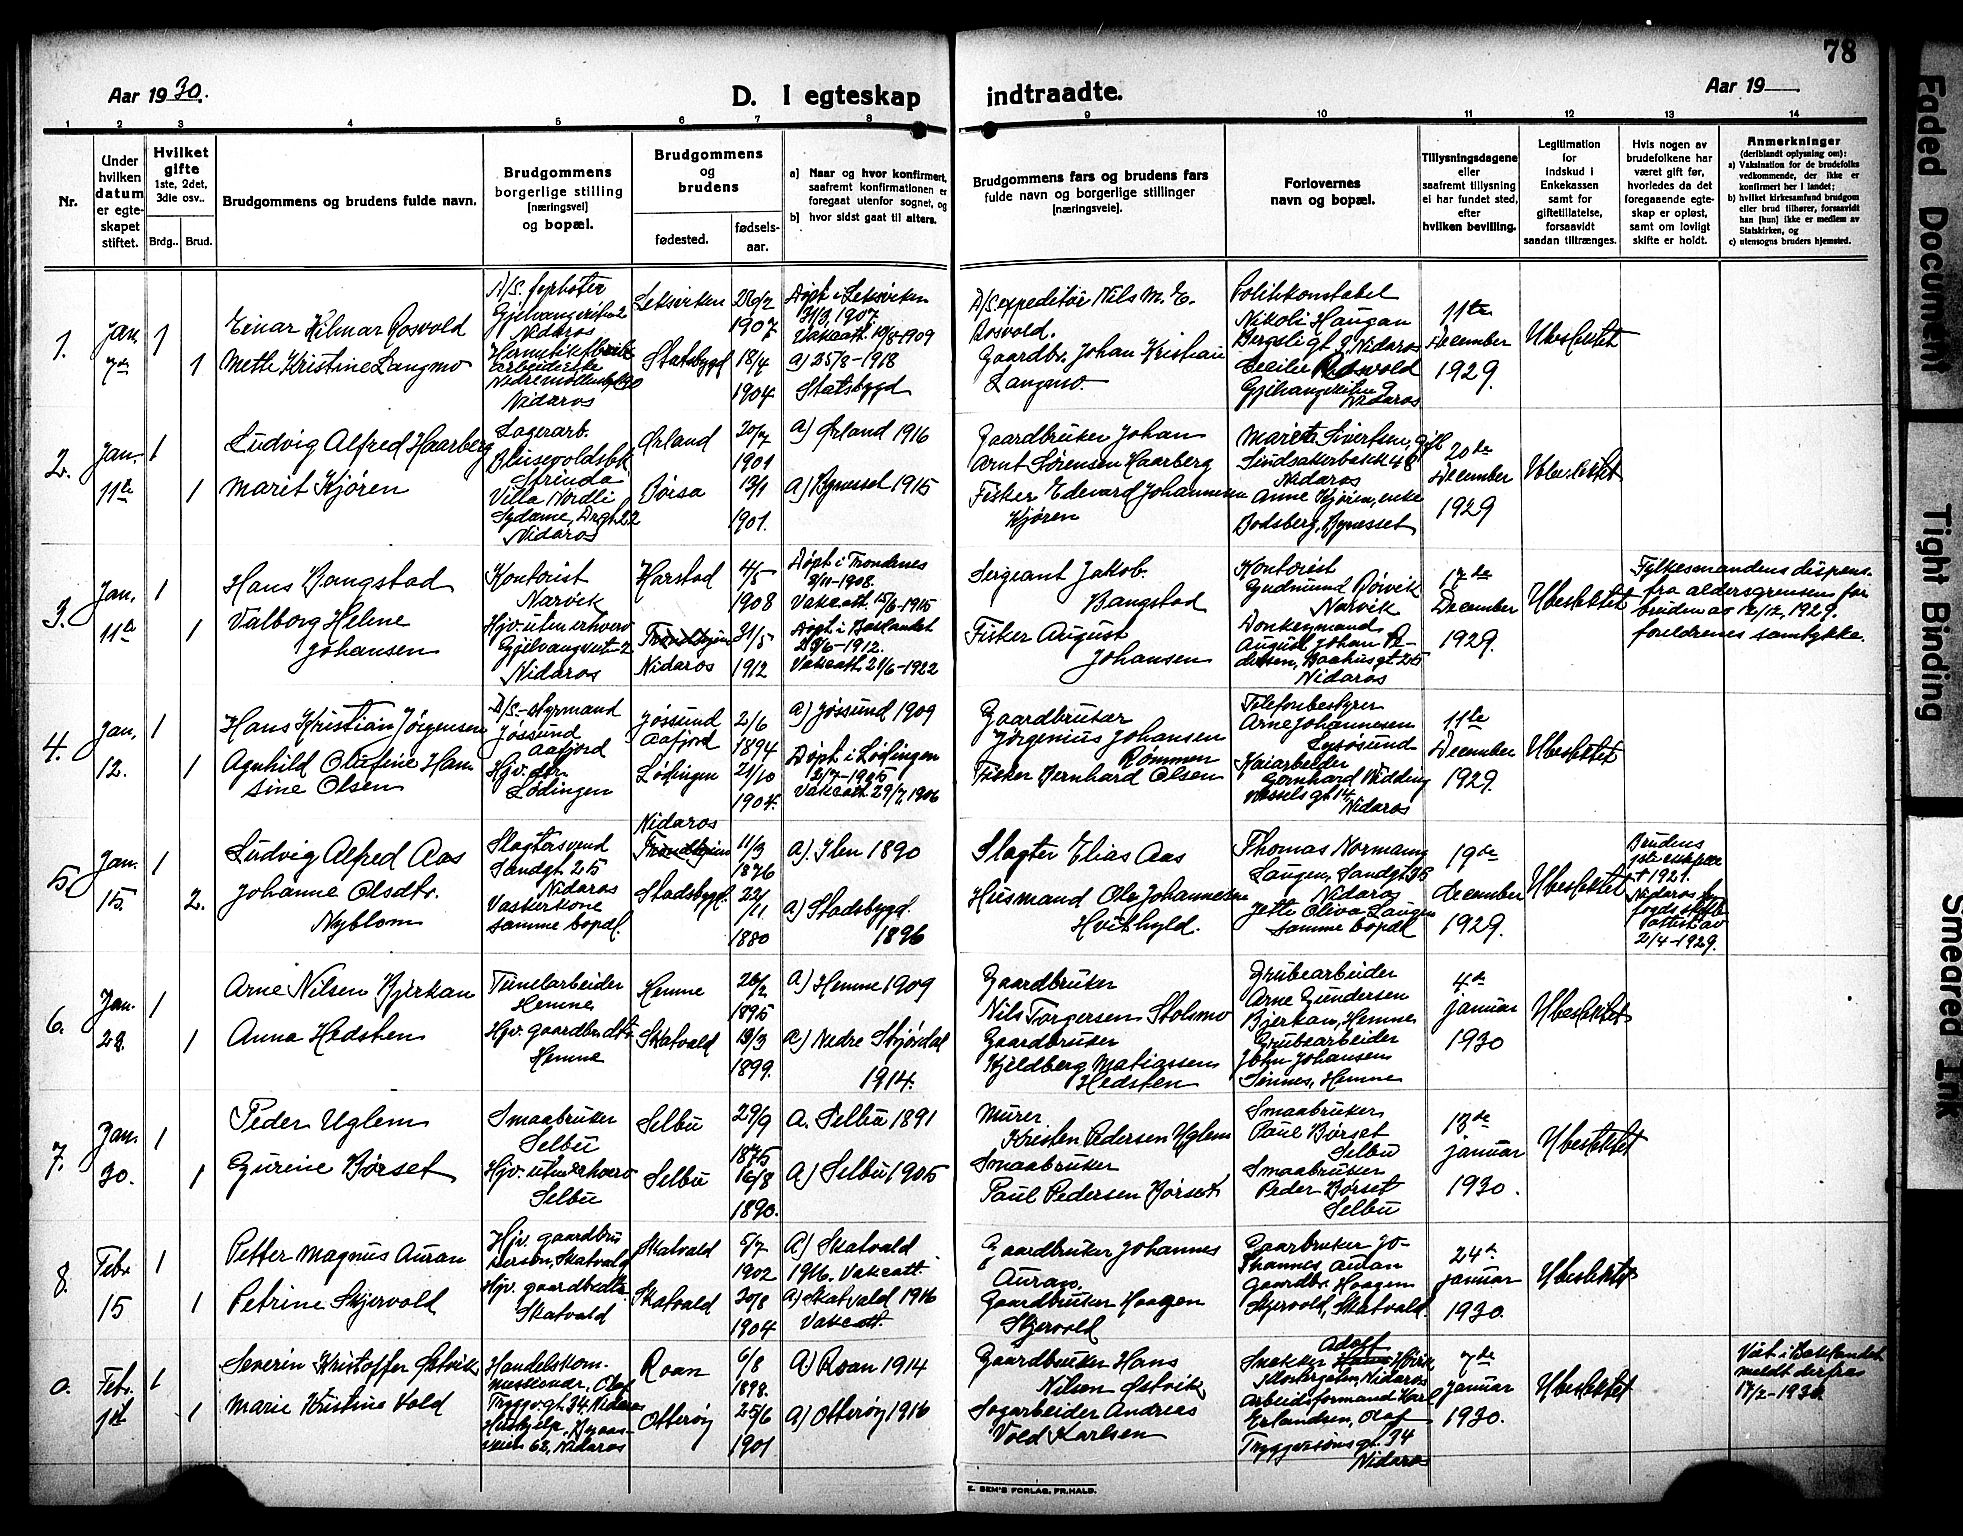 78
Aar 1930.
D. I egteskap
indtraadte.
Aar 19
1 2 3 4 5 6 7 8 9 10 11 12 13 14
Nr.
Under hvilken datum er egteskapet stiftet.
Hvilket gifte
1ste, 2det, 3die osv..
Brdg.. Brud.
Brudgommens og brudens fulde navn.
Brudgommens borgerlige stilling [næringsvei] og bopæl.
Brudgommens og brudens
fødested.
fødsels-aar.
a) Naar og hvor konfirmert, saafremt konfirmationen er foregaat utenfor sognet, og
b) hvor sidst gaat til alters.
Brudgommens fars og brudens fars fulde navn og borgerlige stillinger [næringsveie].
Forlovernes navn og bopæl.
Tillysningsdagene eller saafremt tillysning ei har fundet sted, efter hvilken bevilling.
Legitimation for Indskud i Enkekassen samt for giftetillatelse, forsaavidt saadan tiltrænges.
Hvis nogen av brudefolkene har været gift før, hvorledes da det foregaaende egteskap er opløst, samt om lovligt skifte er holdt.
Anmerkninger
(deriblandt oplysning om):
a) Vaksination for de brudefolks vedkommende, der ikke er konfirmert her i landet;
b) hvilket kirkesamfund brudgom eller brud tilhører, forsaavidt han [hun] ikke er medlem av Statskirken, og
c) utensogns bruders hjemsted.
1. Jan. 7de 1 1
Einar Hilmar Rosvold
Mette Kristine Langmo
A/S. fyrbøter
Nidaros
Nidaros
Leksviken 26/2 1907
Statsbygd 18/4 1904
Døpt i Leksviken
31/3 1907
a) 25/8-1918
Statsbygd
D/S expeditør Nils M. E.
Rosvold.
Gaardbr. Johan Kristian
Langmo
Politikonstabel
Nikoli Haugan
Nidaros
Cecilie Rosvold
Nidaros
11te
December
1929.
Ubeskottet
2. Jan. 11te 1 1
Ludvig Alfred Haarberg
Marit Kjøren
Lagerarb.
Strinda
Villa Nordli
Nidaros
Ørland 20/7 1901
Børsa 13/1 1901.
a) Ørland 1916
a) Bynesset 1915
Gaardbruker Johan
Arnt Sørensen Haarberg
Fisker Edevard Johannesen
Kjøren
Nidaros
Anne Kjøren, enke
Bodsberg, Bynesset
20de
December
1929
3. Jan. 11te 1 1
Hans Bangstad
Valborg Helene
Johansen
Kontorist
Narvik
Hjv. uten erhverv
Nidaros
Harstad 4/5 1908
Trondhjem
Nidaros 31/5 1912
Døpt i Trondenes
8/11-1908.
Vakcatt. 15/6-1915
Døpt i Baklandet
23/6-1912.
Vakcatt. 21/6-1922
Sergeant Jakob
Bangstad
Fisker August
Johansen
Kontorist
Gudmund Rørvik
Narvik
Donkeymand
August Johan Pe-
dersen, Baahusgt. 25
Nidaros
17de
December
1929.
Ubeskottet
Fylkesmandens dispens.
fra aldersgrensen for
bruden av 12/12, 1929.
foreldrenes samtykke.
4. Jan. 12. 1 1
Hans Kristian Jørgensen
Agnhild Olafine Han
sine Olsen
D/S.-styrmand
Jøssund
Aafjord
Hjv. dtr.
Lødingen
Jøssund
Aafjord 2/6 1894
Lødingen 21/10 1904.
a) Jøssund 1909
Døpt i Lødingen
Vakcatt. 29/7, 1906
Gaardbruker
Jørgenius Johansen
Rømmen
Fisker Bernhard Olsen
Telefonbestyrer
Arne Johannesen
Lysøsund
Kaiarbeider
Nidaros
11te
December
1929.
Ubeskottet
5. Jan. 15. 1 2.
Ludvig Alfred Aas
Johanne Olsdtr.
Nyblom
Slagtersvend
Sandgt. 25
Nidaros
Vaskerkone
samme bopæl.
Nidaros
Trondhjem 11/3 1876
Stadsbygd. 22/11 1880
a). Ilen 1890
a) Stadsbygd.
1896
Slagter Elias Aas
Husmand Ole Johannesen
Hvithyld.
Thomas Normann
Laugen, Sandgt. 25
Nidaros
Jette Oliva Laugen
samme bopæl
19de
December
1929.
Ubeskottet
Brudens
† 1921.
Nidaros
2/4-1929.
6. Jan. 28. 1 1
Arne Nilsen Bjerkan
Anna Hedsten
Tunelarbeider
Hemne
Hjv. gaardbr.dtr.
Hemne
Hemne 26/2 1895
Skatvald 13/3 1899.
a) Hemne 1909
a) Nedre Stjørdal
1914.
Gaardbruker
Nils Torgersen Stolsmo
Gaardbruker
Kjeldberg Matiassen
Hedsten
Grubearbeider
Arne Gundersen
Bjerkan, Hemne
Grubearbeider
John Johansen
Sinnes, Hemne
4de
januar
1930
Ubeskottet
7. Jan. 30. 1 1
Peder Uglem
Gurine Børset
Smaabruker
Selbu
Hjv. uten erhverv
Selbu
Selbu 29/9 1875
Selbu 16/8 1890.
a. Selbu 1891
a) Selbu 1905
Murer
Kristen Pedersen Uglem
Smaabruker
Paul Pedersen Børset
Smaabruker
Paul Børset
Selbu
Smaabruker
Peder Børset
Selbu
13de
januar
1930.
Ubeskottet
8. Febr 15 1 1
Petter Magnus Auran
Petrine Skjervold
Hjv. gaardbru
kersøn, Skatvald
Hjv. gaardbr.dtr.
Skatvald
Skatvald 5/7 1902
Skatvald 30/8 1904
a) Skatvald
1916. Vakcatt.
a) Skatvald 1916
Vakcatt.
Gaardbruker Johannes
Auran.
Gaardbruker Haagen
Skjervold
Gaarbruker Jo-
hannes Auran
Gaardbr. Haagen
Skjervold, Skatvald.
24de
januar
1930.
Ubeskottet
Febr. 1 1
Severin Kristoffer Østvik
Marie Kristine Vold
Handelskom-
missionær. Olaf
Tryggv.gt. 34. Nidaros
Nidaros
Roan 6/8 1898.
Otterøy 25/6 1901
a) Roan 1914
a) Otterøy 1916
Gaardbruker Hans
Nilsen Østvik
Sagarbeider Andreas
Vold Karlsen
Adolf
Snekker Hans Høvik
Klostergaten, Nidaros
Arbeidsformand Karl
Erlandsen, Olaf
Tryggvesønsgt. 34
Nidaros
7de
januar
1930.
Ubeskottet
Viet i Baklandet
meldt derfra
17/2-1930
E. SEM'S FORLAG, FR.HALD.
Faded Document
Tight Binding
Smeared Ink